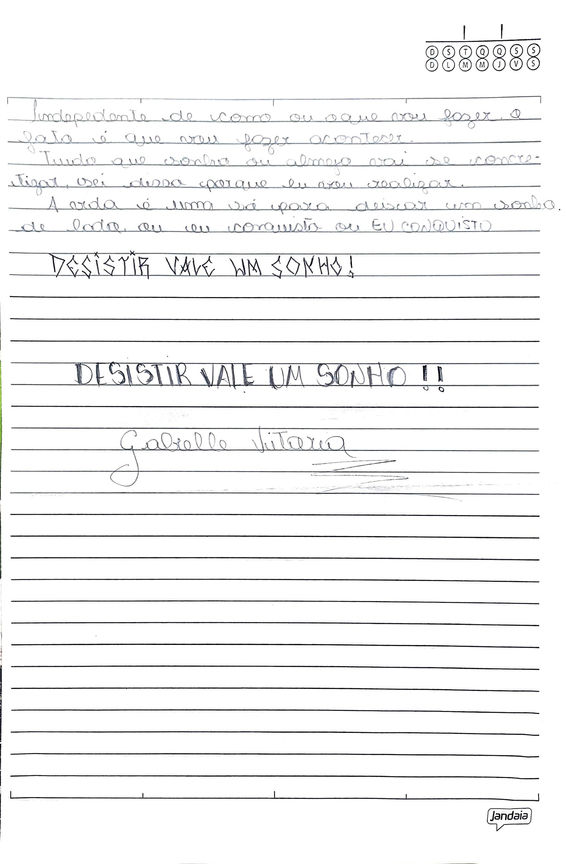 D S T Q Q S S
D L M M J V S
Independente de como ou oque vou fazer, o
fato é que vou fazer acontecer.
Tudo que sonho ou almejo vai se concre-
tizar, sei dissa porque eu vou realizar.
A vida é uma só para deixar um sonho
de lado, ou eu conquisto ou EU CONQUISTO
DESISTIR VALE UM SONHO!
DESISTIR VALE UM SONHO!!
Gabrelle Vitoria
Jandaia